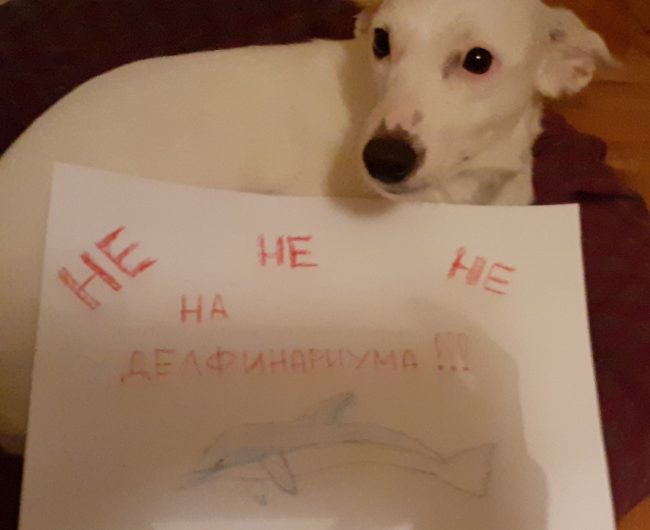 НЕ НЕ НЕ
НА
ДЕЛФИНАРИУМА !!!